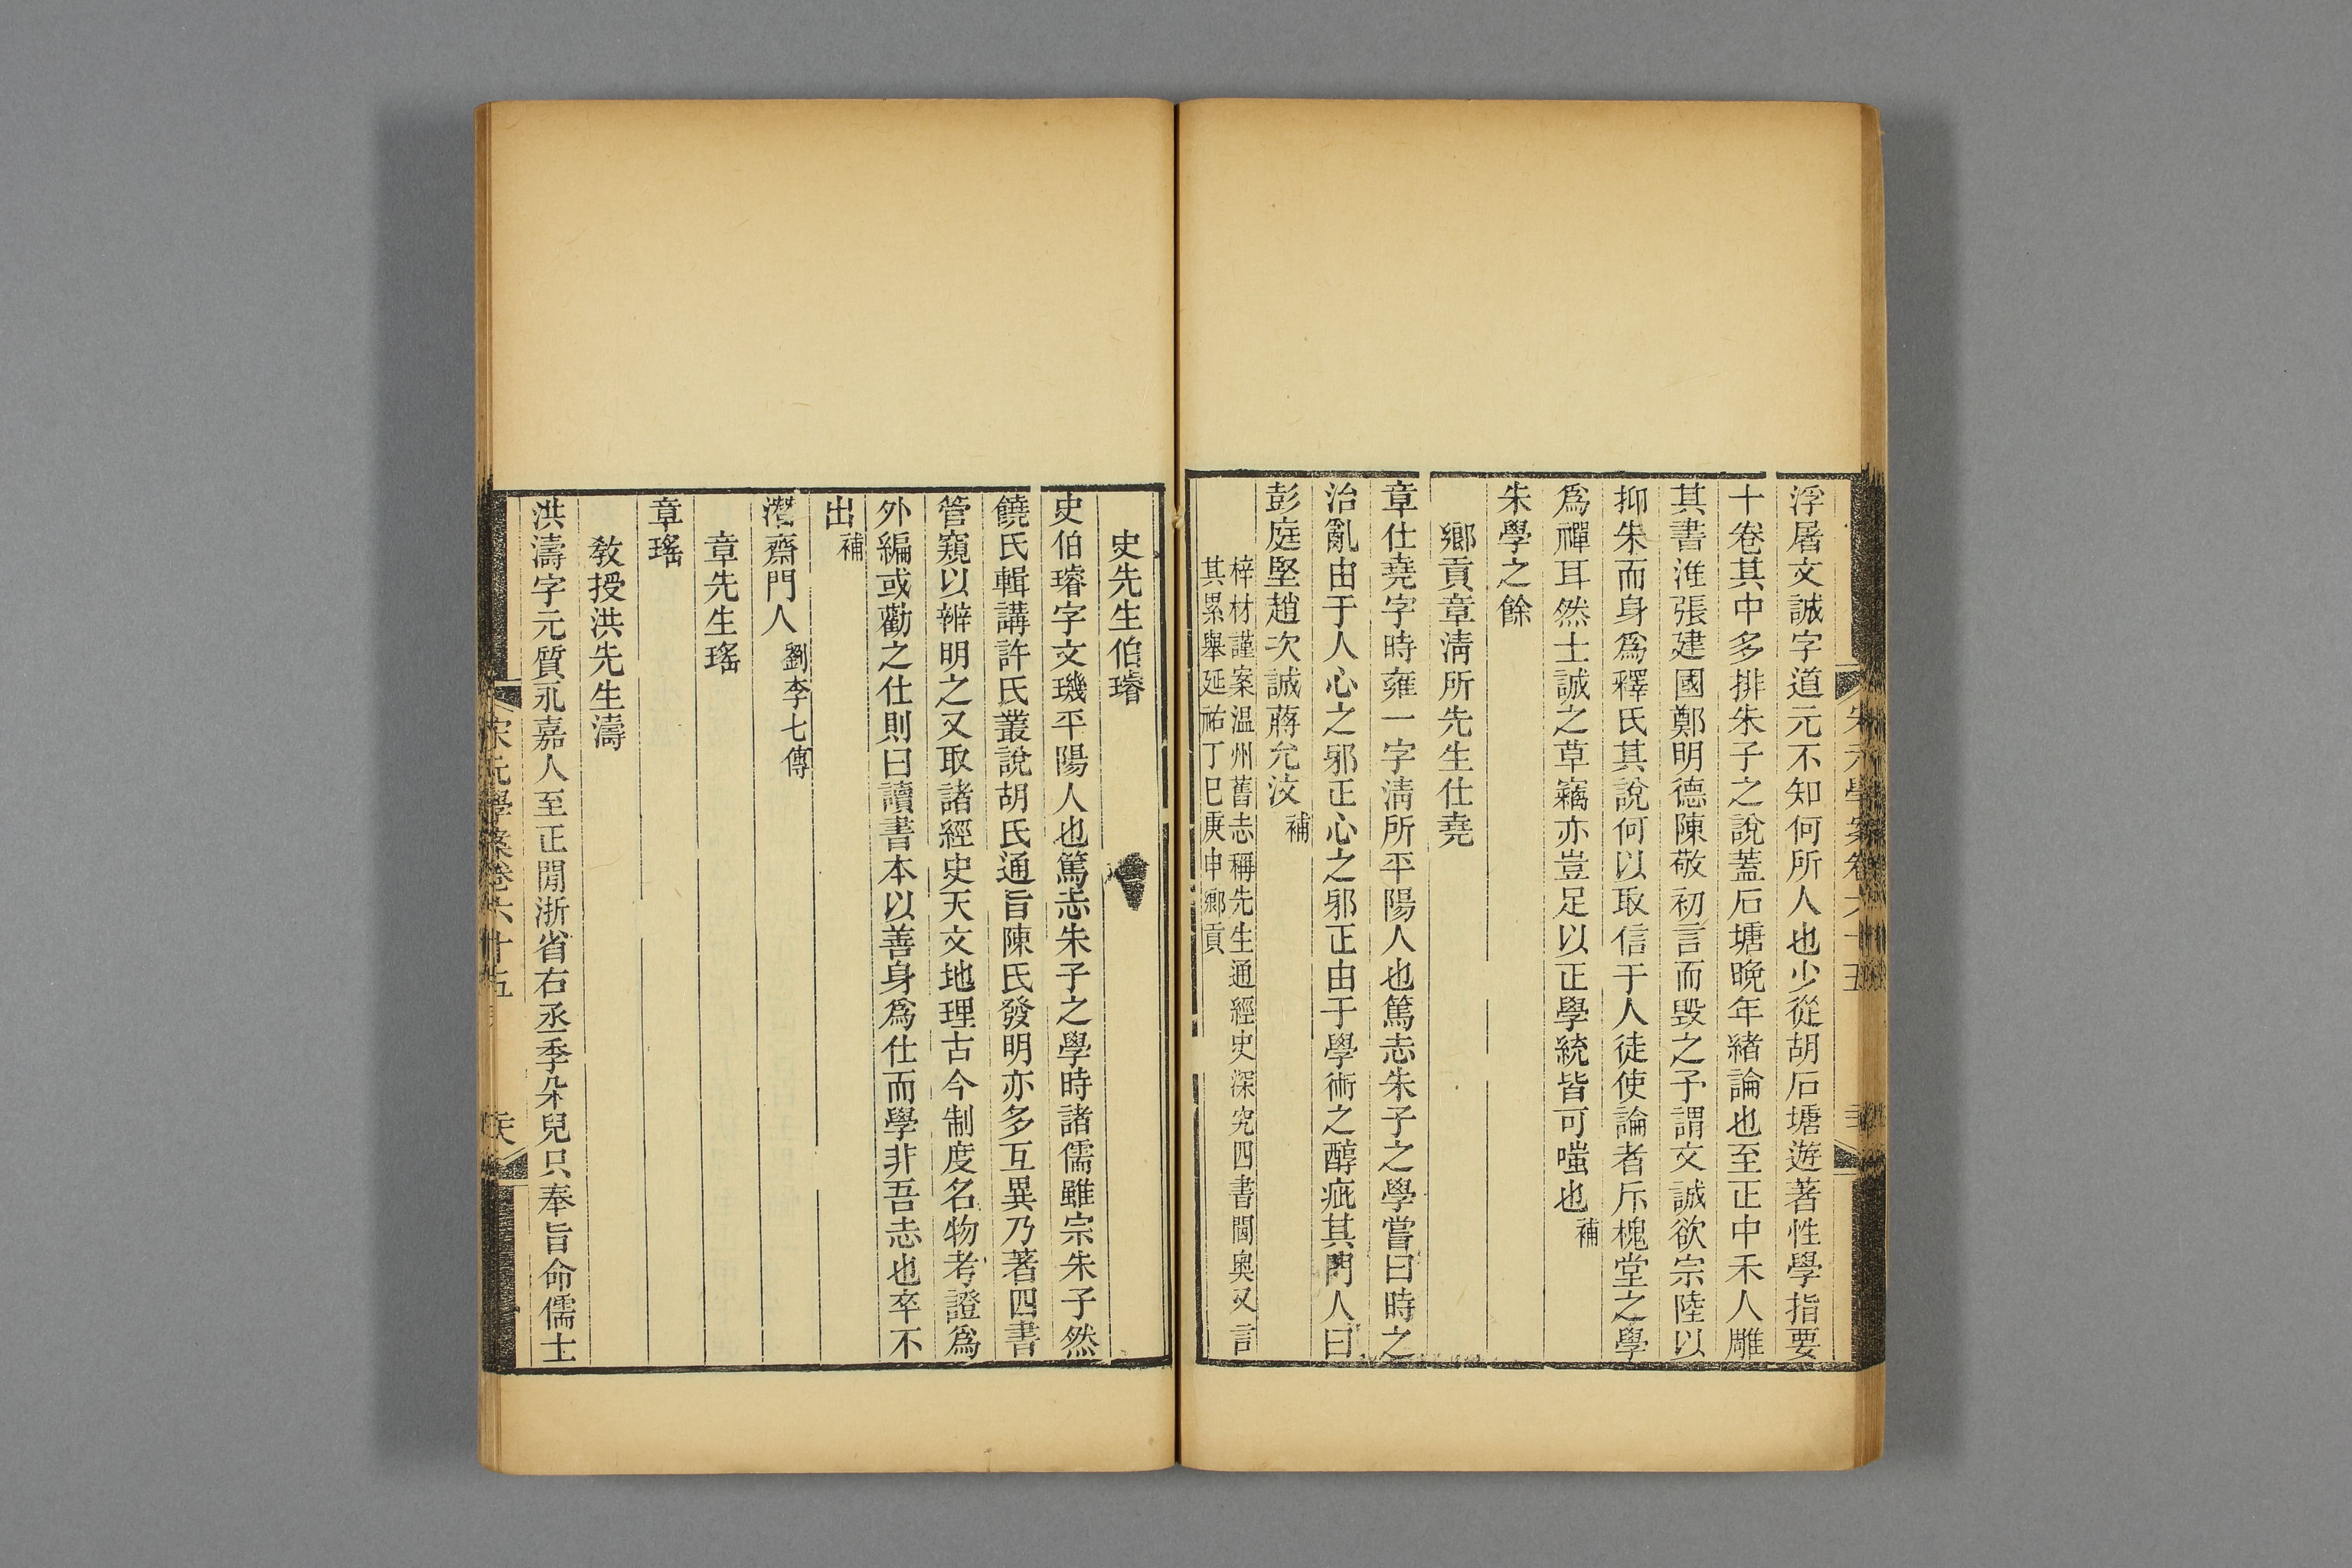 浮屠文誠字道元不知何所人也少從胡石塘遊著性學指要
十卷其中多排朱子之說蓋石塘晚年緒論也至正中禾人雕
其書淮張建國鄭明德陳敬初言而毀之予謂文誠欲宗陸以
抑朱而身爲釋氏其說何以取信于人徒使論者斥槐堂之學
爲禪耳然士誠之草竊亦豈足以正學統皆可嗤也補
朱學之餘
鄉貢章淸所先生仕堯
章仕堯字時雍一字淸所平陽人也篤志朱子之學嘗曰時之
治亂由于人心之邪正心之邪正由于學術之醇疵其門人曰
彭庭堅趙次誠蔣允汶補
梓材謹案温州舊志稱先生通經史深究四書閫奧又言
其累舉延祐丁巳庚申鄉貢
史先生伯璿
史伯璿字文璣平陽人也篤志朱子之學時諸儒雖宗朱子然
饒氏輯講許氏叢說胡氏通旨陳氏發明亦多互異乃著四書
管窺以辨明之又取諸經史天文地理古今制度名物考證爲
外編或勸之仕則曰讀書本以善身爲仕而學非吾志也卒不
出補
潛齋門人劉李七傳
章先生瑤
章瑤
教授洪先生濤
洪濤字元質永嘉人至正閒浙省右丞季朶兒只奉旨命儒士
宋元學案卷六十五